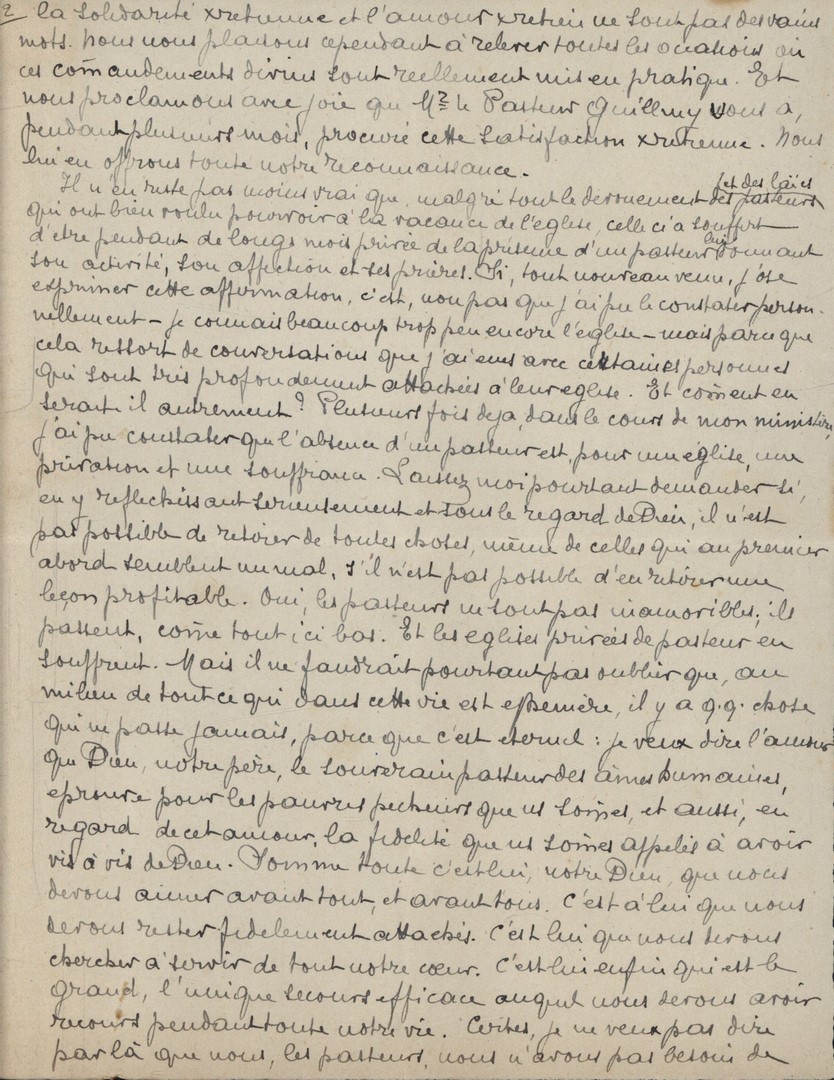 2 la solidarité xretienne et l'amour xretien ne sont pas des vains
mots. Nous nous plaisons cependant à relever toutes les occasions où
ces com̄andements divins sont reellement mis en pratique. Et
nous proclamons avec joie que Mr le Pasteur Quillmy vous a,
pendant plusieurs mois, procuré cette satisfaction xretienne. Nous
lui en offrons toute notre reconnaissance.
Il n'en reste pas moins vrai que, malgré tout le dévouement des pasteurs et des laïcs
qui ont bien voulu pourvoir à la vacance de l'église, celle ci a souffert
d'être pendant de longs mois privée de la présence d'un pasteur lui donnant
son activité, son affection et ses prières. Si, tout nouveau venu, j'ose
exprimer cette affirmation, c'est, non pas que j'ai pu le constater person-
nellement – je connais beaucoup trop peu encore l'église – mais parce que
cela ressort de conversations que j'ai eues avec certaines personnes
qui sont très profondement attachées à leur eglise. Et com̄ent en
serait il autrement? Plusieurs fois deja, dans le cours de mon ministère,
j'ai pu constater que l'absence d'un pasteur est, pour une église, une
privation et une souffrance. Laissez moi pourtant demander si,
en y reflechissant serieusement et sous le regard de Dieu, il n'est
pas possible de retirer de toutes choses, même de celles qui au premier
abord semblent un mal, s'il n'est pas possible d'en retirer une
leçon profitable. Oui, les pasteurs ne sont pas inamovibles; ils
passent, com̄e tout ici bas. Et les eglises privées de pasteur en
souffrent. Mais il ne faudrait pourtant pas oublier que, au
milieu de tout ce qui dans cette vie est ephemère, il y a q.q. chose
qui ne passe jamais, parce que c'est eternel : je veux dire l'amour
que Dieu, notre père, le souverain pasteur des âmes humaines,
eprouve pour les pauvres pecheurs que ns som̄es, et aussi, en
regard de cet amour, la fidelité que ns som̄es appelés à avoir
vis à vis de Dieu. Somme toute c'est lui, notre Dieu, que nous
devons aimer avant tout, et avant tous. C'est à lui que nous
devons rester fidelement attachés. C'est lui que nous devons
chercher à servir de tout notre cœur. C'est lui enfin qui est le
grand, l'unique secours efficace auquel nous devons avoir
recours pendant toute notre vie. Certes, je ne veux pas dire
par là que nous, les pasteurs, nous n'avons pas besoin de